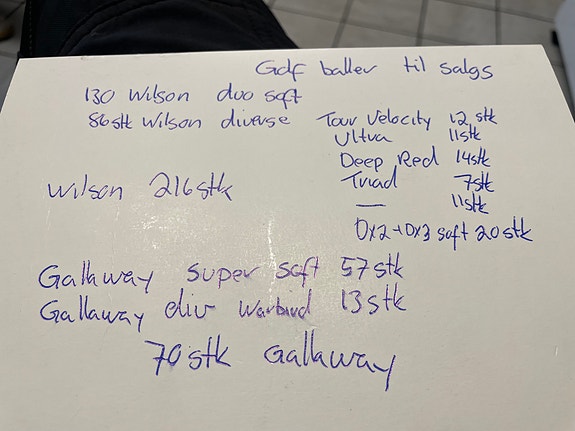 Gdf baller til salgs
130 Wilson duo soft
86stk Wilson diverse Tour Velocity 12 stk
Ultra 11stk
Deep Red 14stk
Triad 7stk
— 11stk
Dx2+Dx3 soft 20stk
Wilson 216stk
Gallaway super soft 57stk
Gallaway div Warbird 13stk
70stk Gallaway